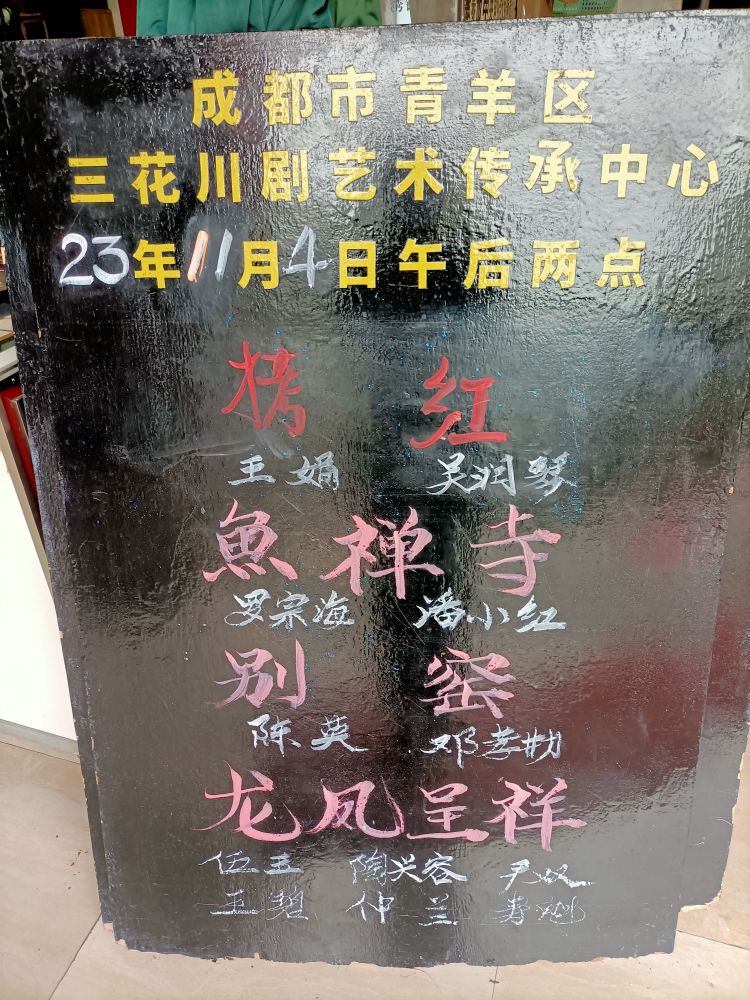 成都市青羊区
三花川剧艺术传承中心
23年11月4日午后两点
拷红
王娟 吴润琴
魚禅寺
罗宗海 潘小红
别窑
陈英 邓孝勤
龙凤呈祥
伍立 陶兴容 尹奴
王碧 仲兰